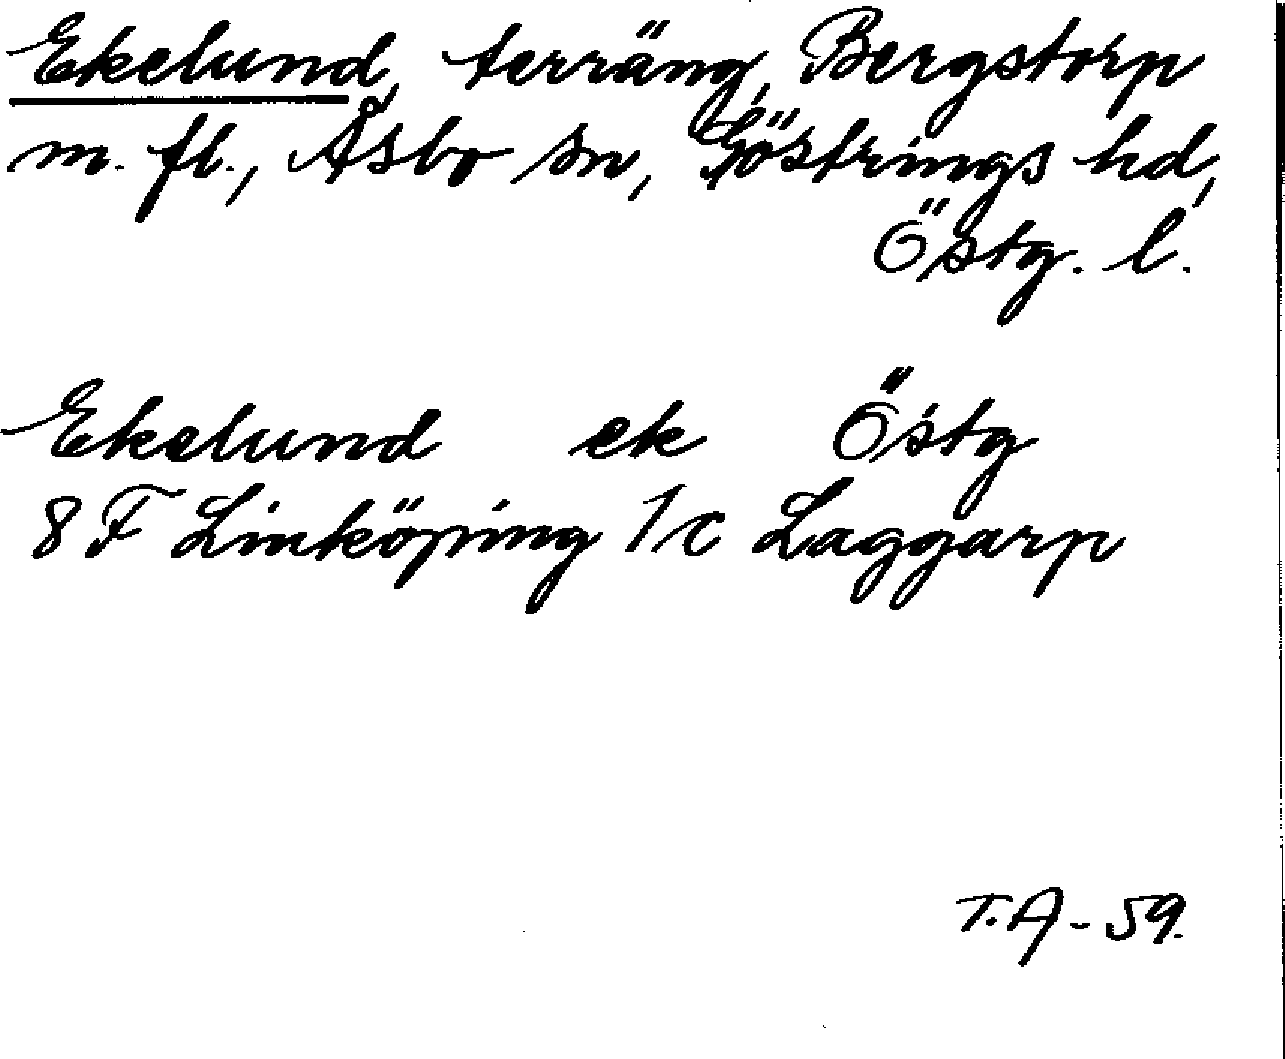 Ekelund, terräng, Bergstorp
m. fl., Åsbo sn, Göstrings hd,
Östg. l.
Ekelund ek Östg
8 F Linköping 1c Laggarp
T.A-59.